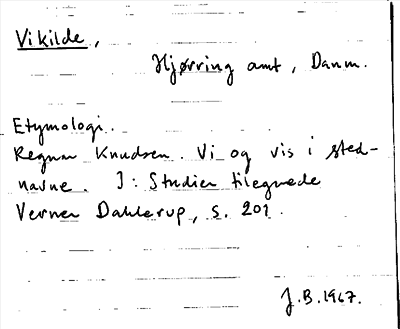 Vikilde,
Hjørring amt, Danm.
Etymologi.
Regnar Knudsen. Vi og vis i sted-
navne. I: Studier tilegnede
Verner Dahlerup, s. 201.
J.B. 1967.